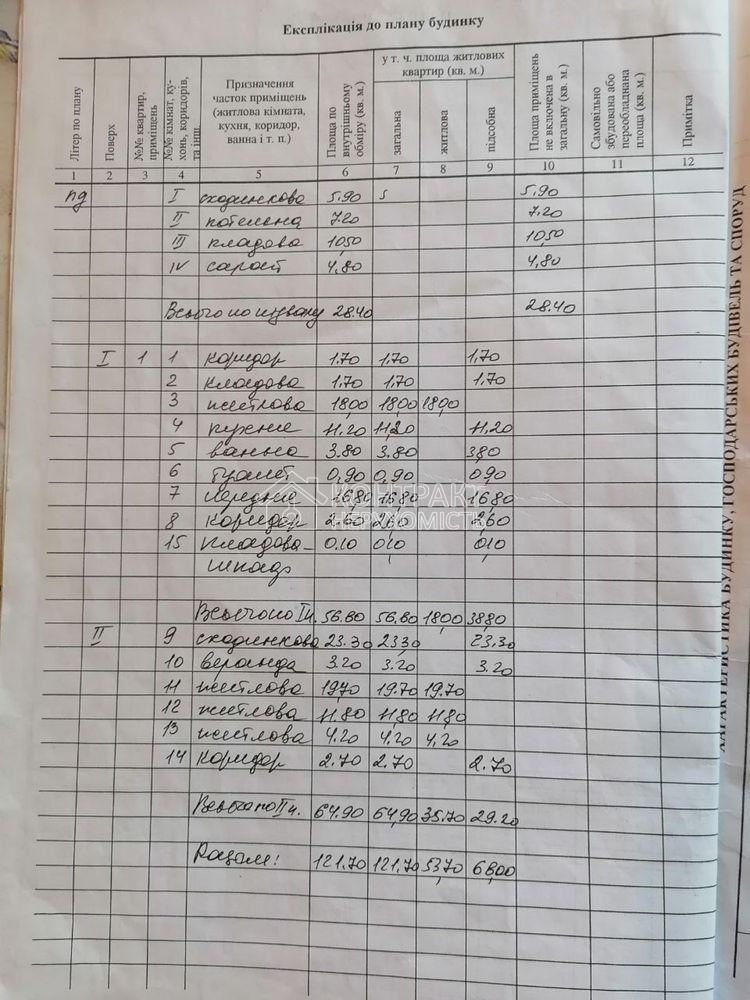 Експлікація до плану будинку
Літер по плану | Поверх | №№ квартир, приміщень | №№ кімнат, кухонь, коридорів, та інш. | Призначення часток приміщень (житлова кімната, кухня, коридор, ванна і т. п.) | Площа по внутрішньому обміру (кв. м.) | у т. ч. площа житлових квартир (кв. м.) | загальна | житлова | підсобна | Площа приміщень не включена в загальну (кв. м.) | Самовільно збудована або переобладнана площа (кв. м.) | Примітка
1 2 3 4 5 6 7 8 9 10 11 12
пд I сходинкова 5.90 5 5.90
II котельна 7.20 7.20
III кладова 10,50 10,50
IV сарай 4,80 4,80
Всього по підвалу 28.40 28.40
I 1 1 коридор 1.70 1,70 1,70
2 кладова 1,70 1,70 1,70
3 житлова 18,00 18,00 18,00
4 кухне 11.20 11,20 11,20
5 ванна 3.80 3.80 3,80
6 туалет 0,90 0,90 0,90
7 передне 16,80 16,80 16,80
8 коридор 2.60 2,60 2,60
15 кладова- 0.10 0,10 0,10
шкаф
Всього по I п. 56.80 56,80 18,00 38,80
II 9 сходинкова 23.30 23,30 23,30
10 веранда 3.20 3.20 3.20
11 житлова 19,70 19.70 19.70
12 житлова 11.80 11,80 11,80
13 житлова 4.20 4,20 4,20
14 коридор 2.70 2.70 2.70
Всього по II п. 64.90 64,90 35.70 29.20
Разом: 121.70 121,70 53,70 68,00
КОНТРАКТ
НЕРУХОМІСТЬ
ХАРАКТЕРИСТИКА БУДИНКУ, ГОСПОДАРСЬКИХ БУДІВЕЛЬ ТА СПОРУД